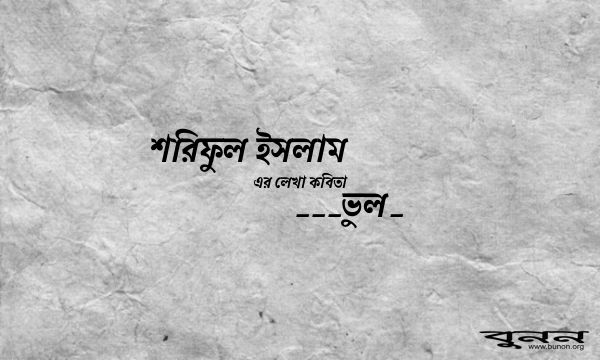 শরিফুল ইসলাম
এর লেখা কবিতা
___ভুল_
বুনন
www.bunon.org